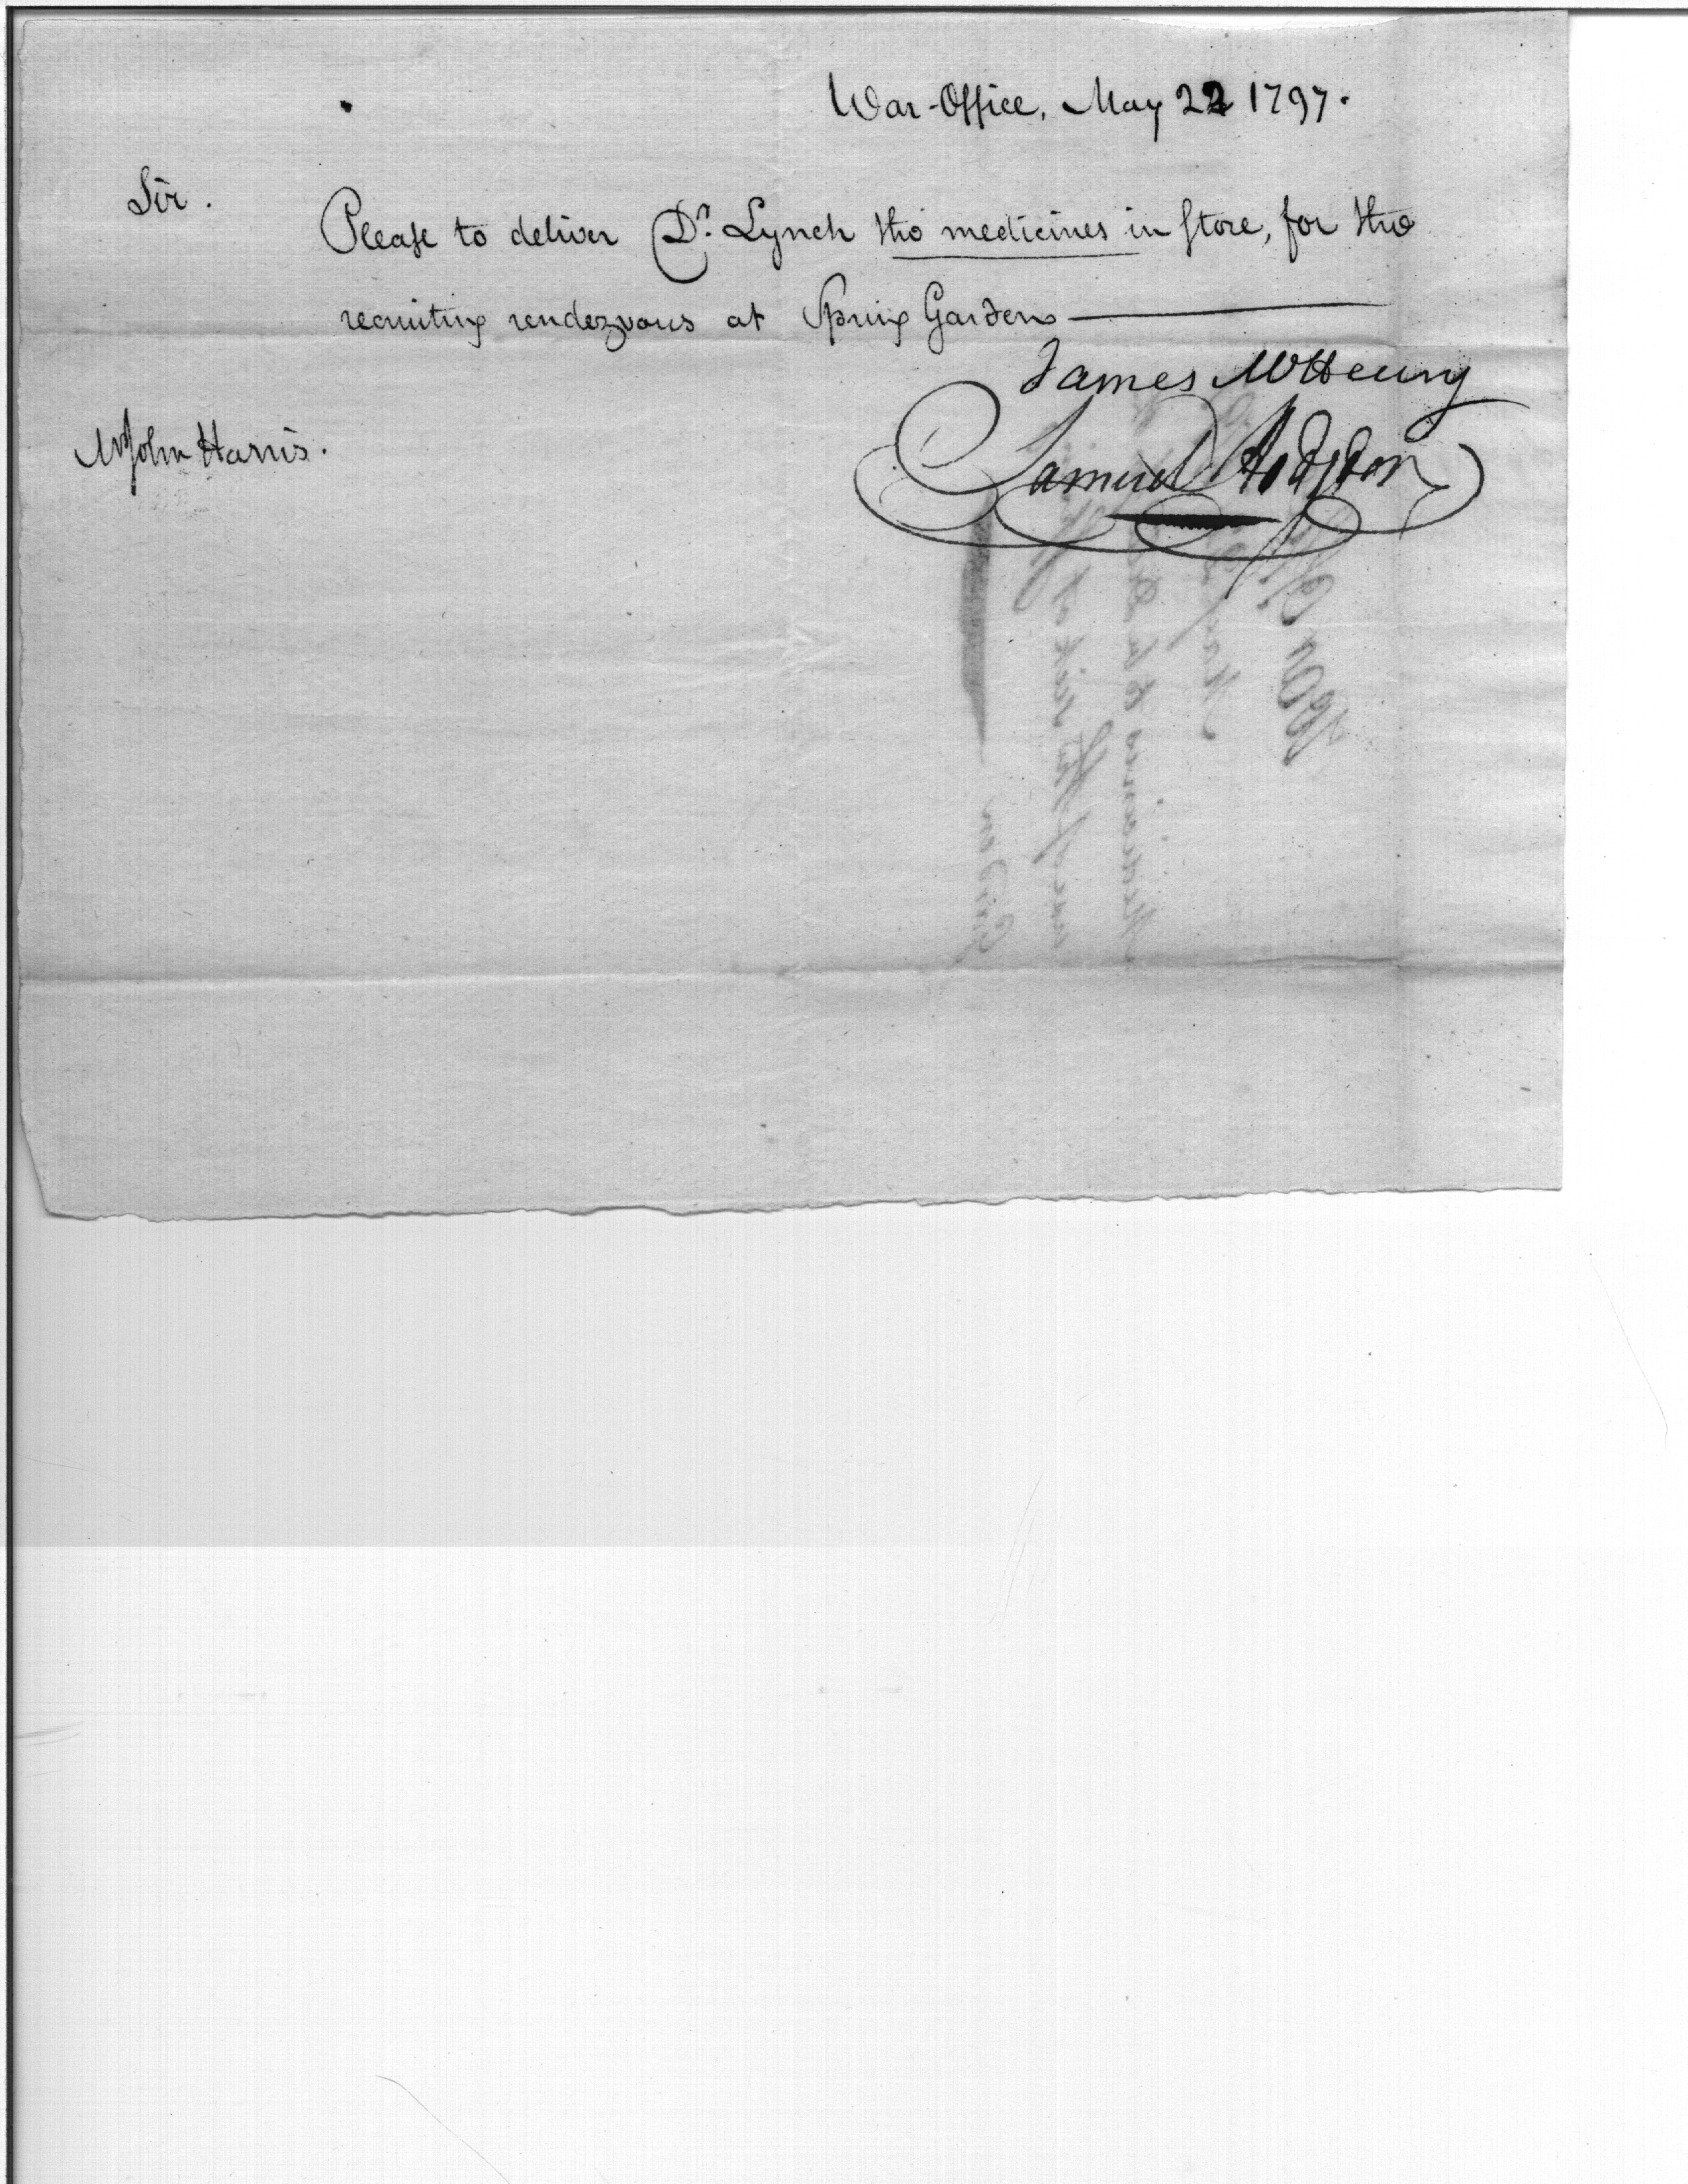 War-Office, May 22 1797.
Sir.
Please to deliver Dr. Lynch the medicines in store, for the
recruiting rendezvous at Spring Gardens
James McHenry
Samuel Hodgdon
Mr John Harris.